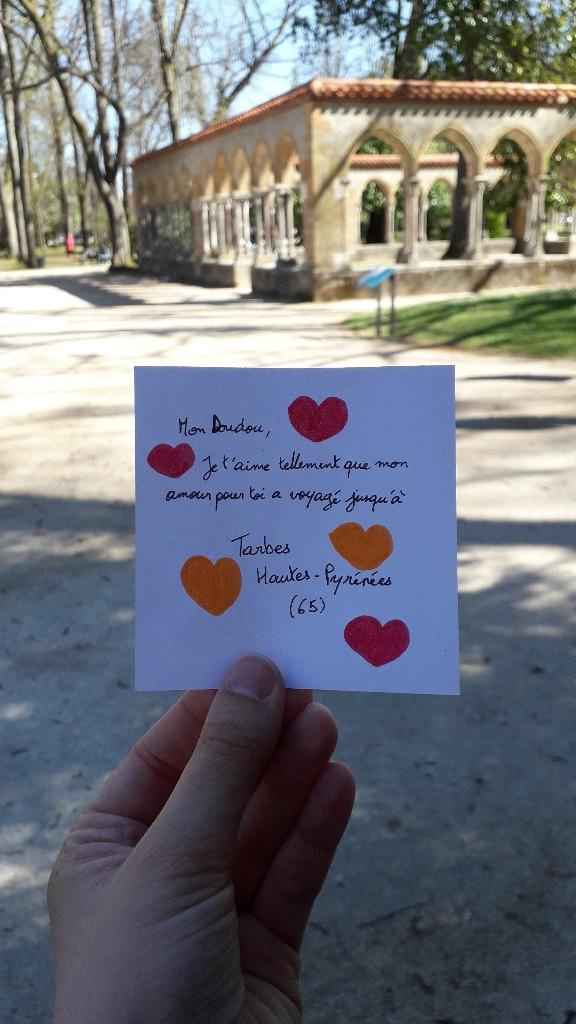 Mon Doudou,
Je t'aime tellement que mon
amour pour toi a voyagé jusqu'à
Tarbes
Hautes-Pyrénées
(65)